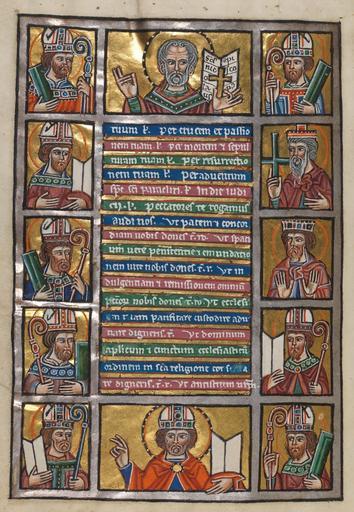 tuum l. Per crucem et passio
nem tuam l. Per mortem et sepul
turam tuam l. Per resurrectio
nem tuam l. Per aduentum
spc sci paracliti l. In die iudi
cii l. Peccatores te rogamus
audi nos. Ut pacem et concor
diam nobis dones t. r. Ut spaci
um uere penitentie et emundatio
nem uite nobis dones t. r. Ut in
dulgentiam et remissionem omnium
pctorum nobis dones t. r. Ut ecclesi
am tuam pacificare custodire adu
nare digneris t. r. Ut domnum
aplicum et cunctum ecclesiasticum
ordinem in sca religione
re digneris t. r. Ut antistitem